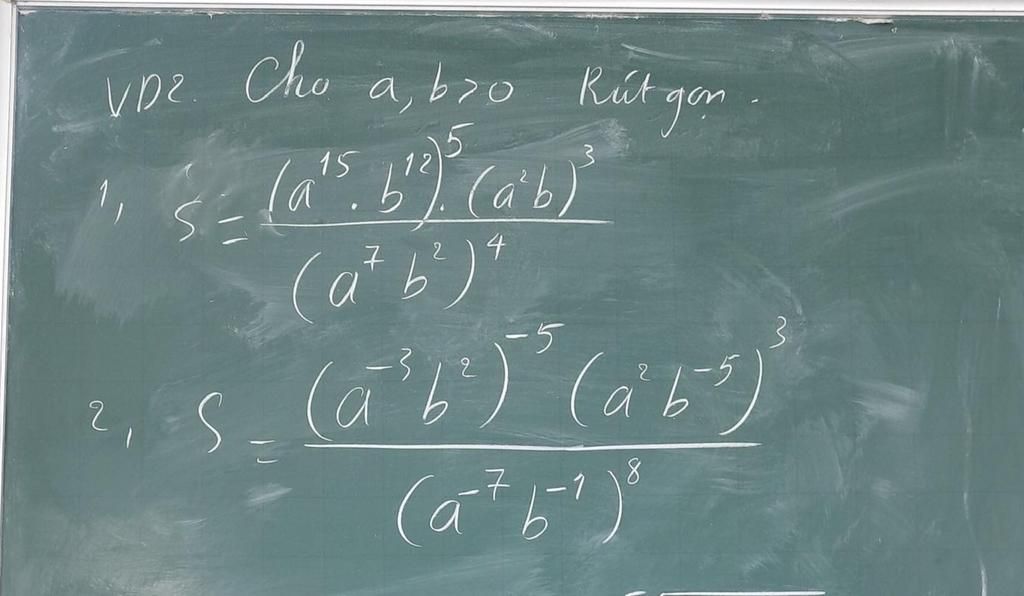 VD2. Cho a, b > 0 Rút gọn.
1, S = \frac{(a^{15} . b^{12})^5 . (a^2 b)^3}{(a^7 b^2)^4}
2, S = \frac{(a^{-3} b^2)^{-5} (a^2 b^{-5})^3}{(a^{-7} b^{-1})^8}